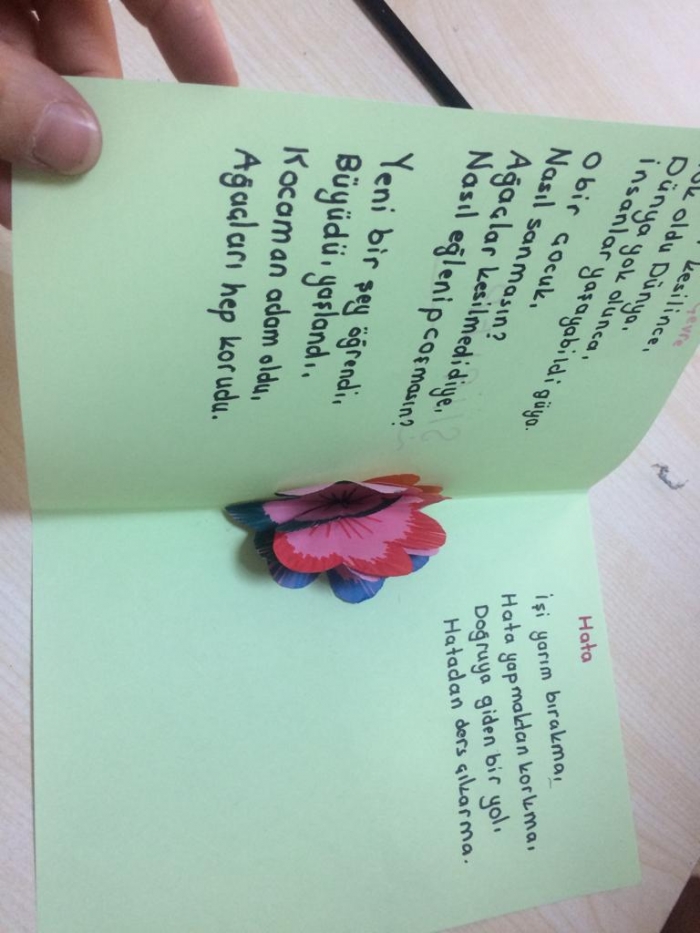 evre
kesilince,
ok oldu Dünya,
Dünya yok olunca,
insanlar yaşayabildi güya.
O bir çocuk,
Nasıl sanmasın?
Ağaçlar kesilmedi diye,
Nasıl eğlenip coşmasın?
Yeni bir şey öğrendi,
Büyüdü, yaşlandı,
Kocaman adam oldu,
Ağaçları hep korudu.
Hata
işi yarım bırakma,
Hata yapmaktan korkma,
Doğruya giden bir yol,
Hatadan ders çıkarma.